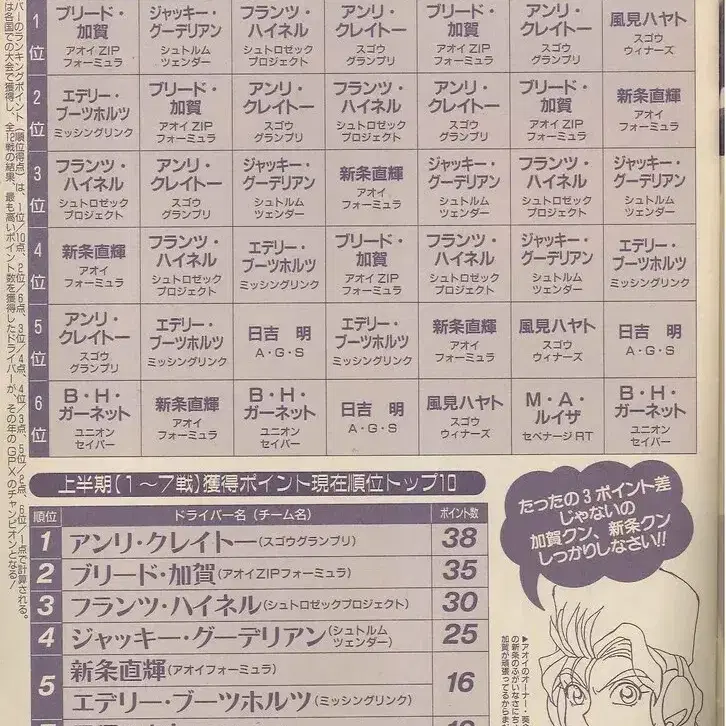 1位
ブリード・
加賀
アオイZIP
フォーミュラ
ジャッキー・
グーデリアン
シュトルム
ツェンダー
フランツ・
ハイネル
シュトロゼック
プロジェクト
アンリ・
クレイトー
スゴウ
グランプリ
ブリード・
加賀
アオイZIP
フォーミュラ
アンリ・
クレイトー
スゴウ
グランプリ
風見ハヤト
スゴウ
ウィナーズ
2位
エデリー・
ブーツホルツ
ミッシングリンク
ブリード・
加賀
アオイZIP
フォーミュラ
アンリ・
クレイトー
スゴウ
グランプリ
フランツ・
ハイネル
シュトロゼック
プロジェクト
アンリ・
クレイトー
スゴウ
グランプリ
ブリード・
加賀
アオイZIP
フォーミュラ
新条直輝
アオイ
フォーミュラ
3位
フランツ・
ハイネル
シュトロゼック
プロジェクト
アンリ・
クレイトー
スゴウ
グランプリ
ジャッキー・
グーデリアン
シュトルム
ツェンダー
新条直輝
アオイ
フォーミュラ
ジャッキー・
グーデリアン
シュトルム
ツェンダー
フランツ・
ハイネル
シュトロゼック
プロジェクト
ジャッキー・
グーデリアン
シュトルム
ツェンダー
4位
新条直輝
アオイ
フォーミュラ
フランツ・
ハイネル
シュトロゼック
プロジェクト
エデリー・
ブーツホルツ
ミッシングリンク
ブリード・
加賀
アオイZIP
フォーミュラ
フランツ・
ハイネル
シュトロゼック
プロジェクト
ジャッキー・
グーデリアン
シュトルム
ツェンダー
エデリー・
ブーツホルツ
ミッシングリンク
5位
アンリ・
クレイトー
スゴウ
グランプリ
エデリー・
ブーツホルツ
ミッシングリンク
日吉 明
A・G・S
エデリー・
ブーツホルツ
ミッシングリンク
新条直輝
アオイ
フォーミュラ
風見ハヤト
スゴウ
ウィナーズ
日吉 明
A・G・S
6位
B・H・
ガーネット
ユニオン
セイバー
新条直輝
アオイ
フォーミュラ
B・H・
ガーネット
ユニオン
セイバー
日吉 明
A・G・S
風見ハヤト
スゴウ
ウィナーズ
M・A・
ルイザ
セペナージRT
B・H・
ガーネット
ユニオン
セイバー
バーのランキングポイント(順位得点)は、1位/10点、2位/6点、3位/4点、4位/3点、5位/2点、6位/1点で計算される。
は各国での大会で獲得し、全12戦の結果、最も高いポイント数を獲得したドライバーが、その年のGPXのチャンピオンとなる!
上半期(1〜7戦)獲得ポイント現在順位トップ10
順位 ドライバー名(チーム名) ポイント数
1 アンリ・クレイトー(スゴウグランプリ) 38
2 ブリード・加賀(アオイZIPフォーミュラ) 35
3 フランツ・ハイネル(シュトロゼックプロジェクト) 30
4 ジャッキー・グーデリアン(シュトルムツェンダー) 25
5 新条直輝(アオイフォーミュラ) 16
エデリー・ブーツホルツ(ミッシングリンク)
たったの3ポイント差
じゃないの
加賀クン、新条クン
しっかりしなさい!!
▶アオイのオーナー・
の新条のふがいなさにち
加賀が頑張ってるからま